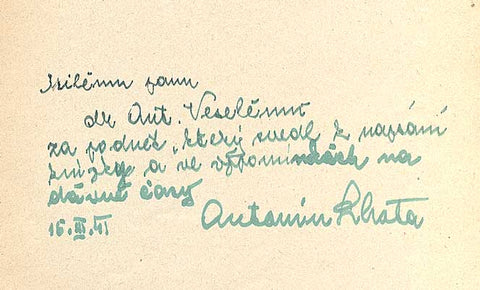 Milému panu
dr Ant. Veselému
za podnět, který vedl k napsání
knížky a ve vzpomínkách na
dávné časy
16.III.41 Antonín Chata